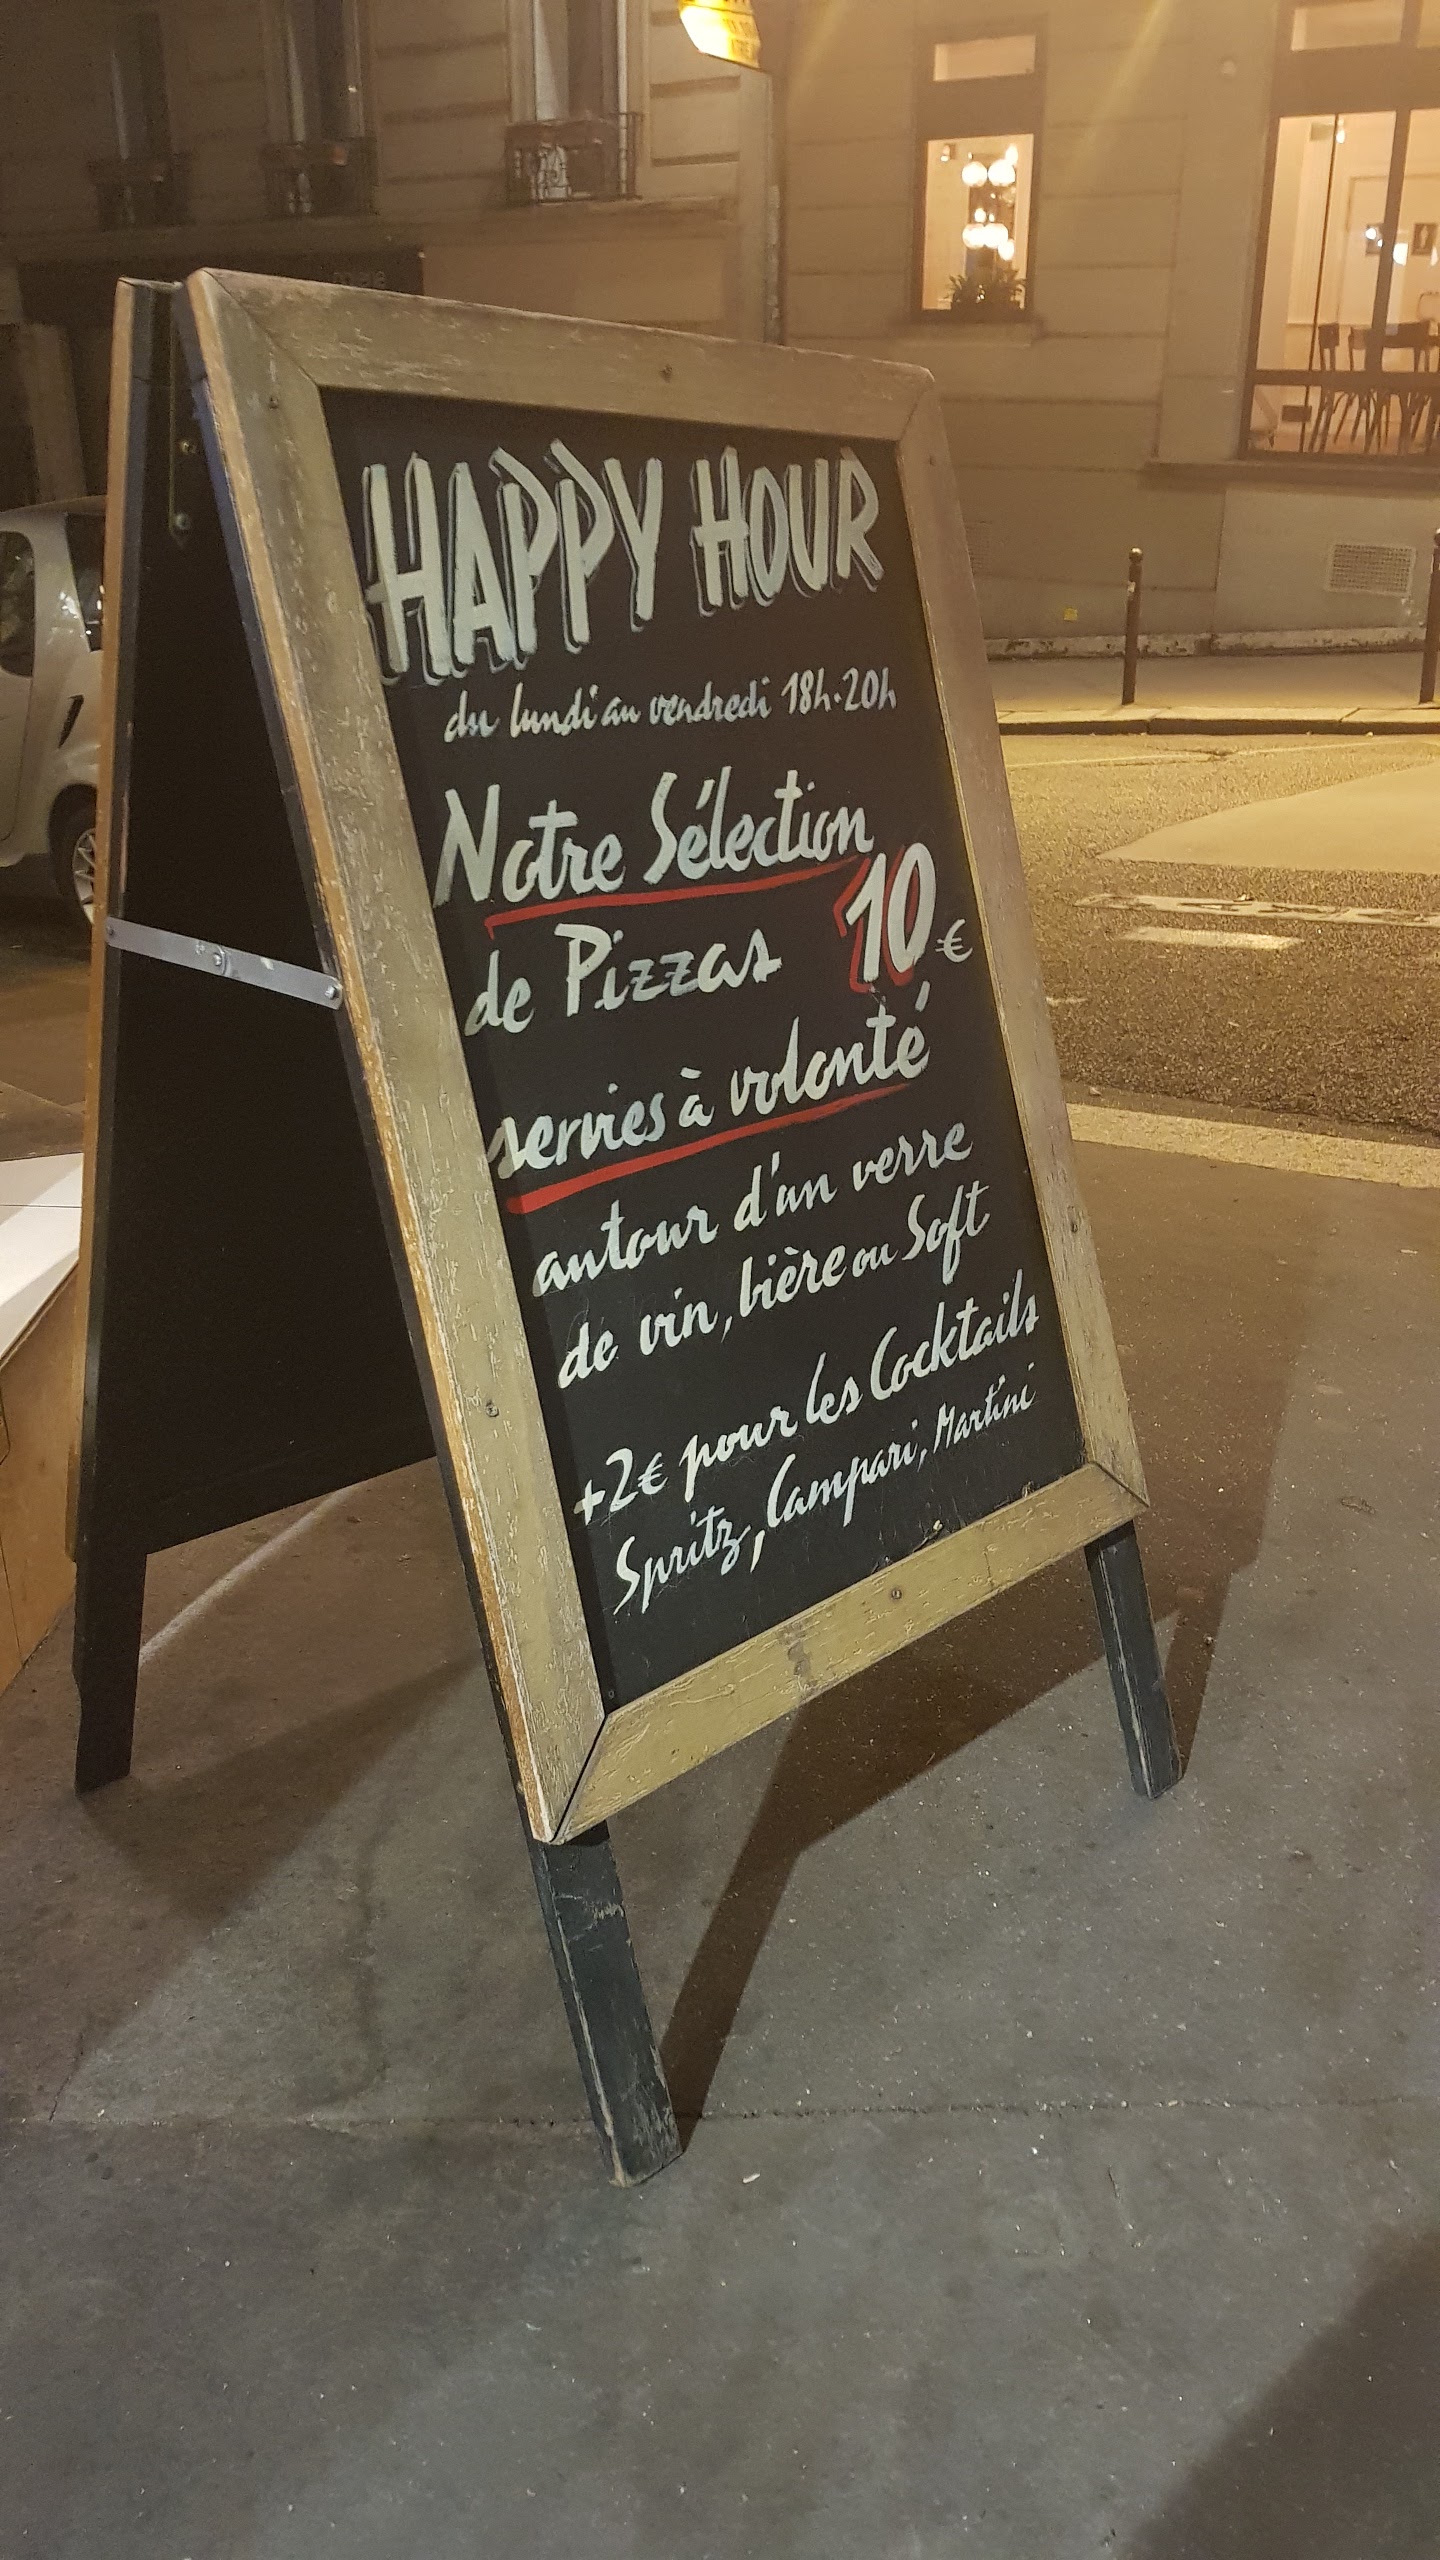 HAPPY HOUR
du lundi au vendredi 18h-20h
Notre Sélection
de Pizzas 10€
servies à volonté
autour d'un verre
de vin, bière ou Soft
+2€ pour les Cocktails
Spritz, Campari, Martini